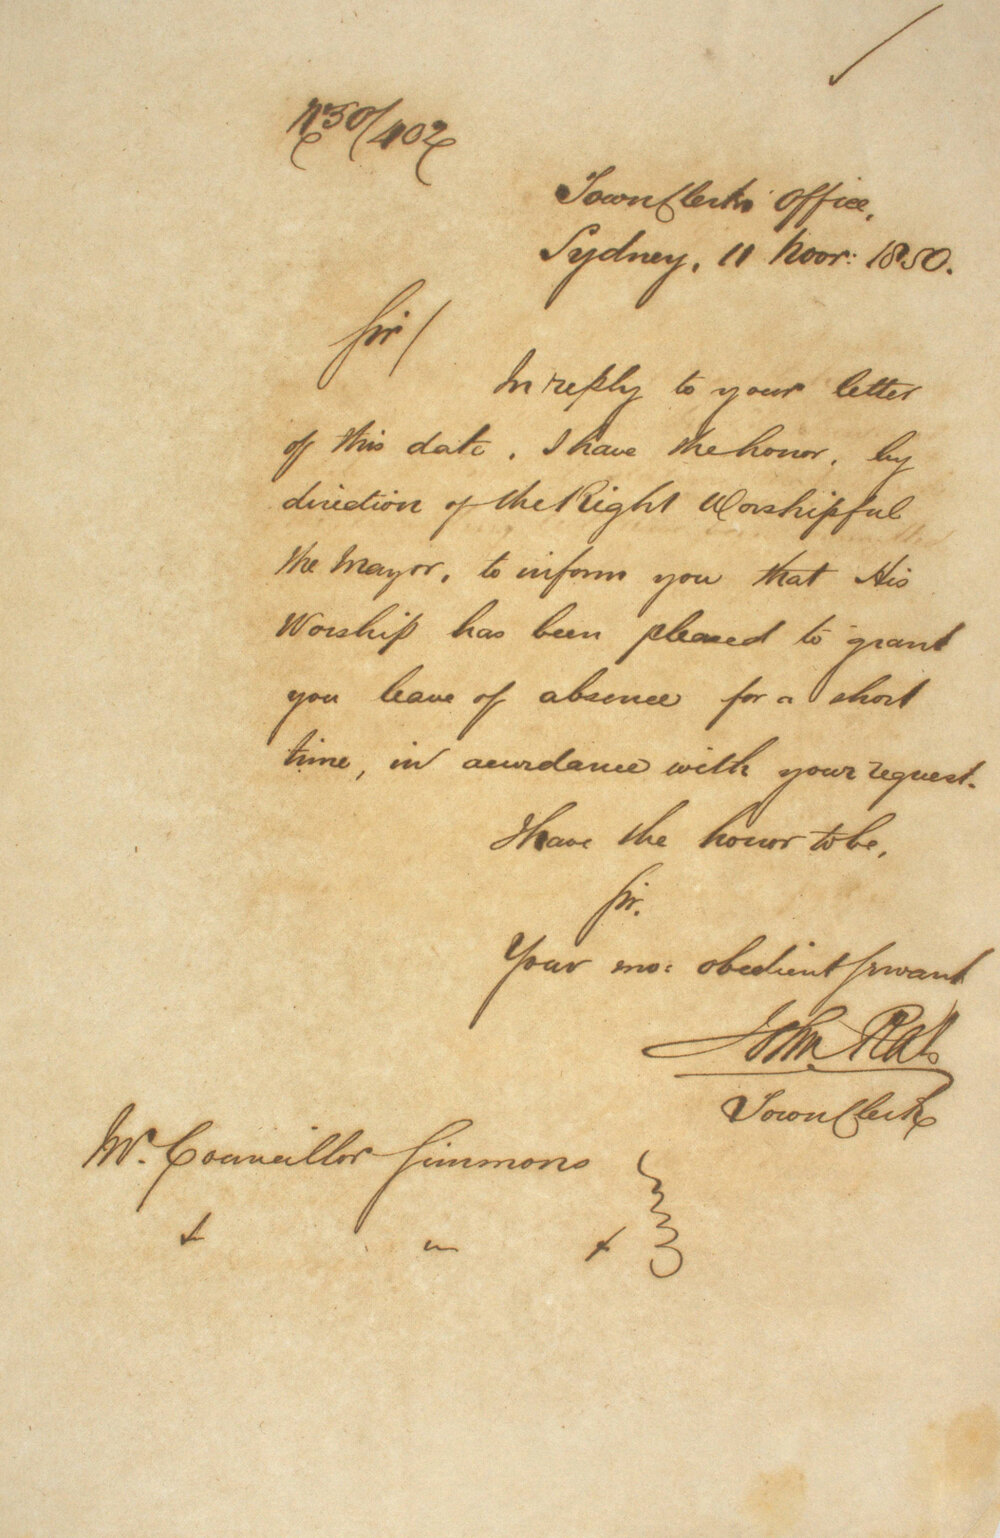 No 50/402
Town Clerk's Office,
Sydney, 11 Novr: 1850.
Sir/
In reply to your letter
of this date, I have the honor, by
direction of the Right Worshipful
the Mayor, to inform you that His
Worship has been pleased to grant
you leave of absence for a short
time, in accordance with your request.
I have the honor to be,
Sir,
Your mo: obedient Servant
John Rae
Town Clerk
Mr. Councillor Simmons